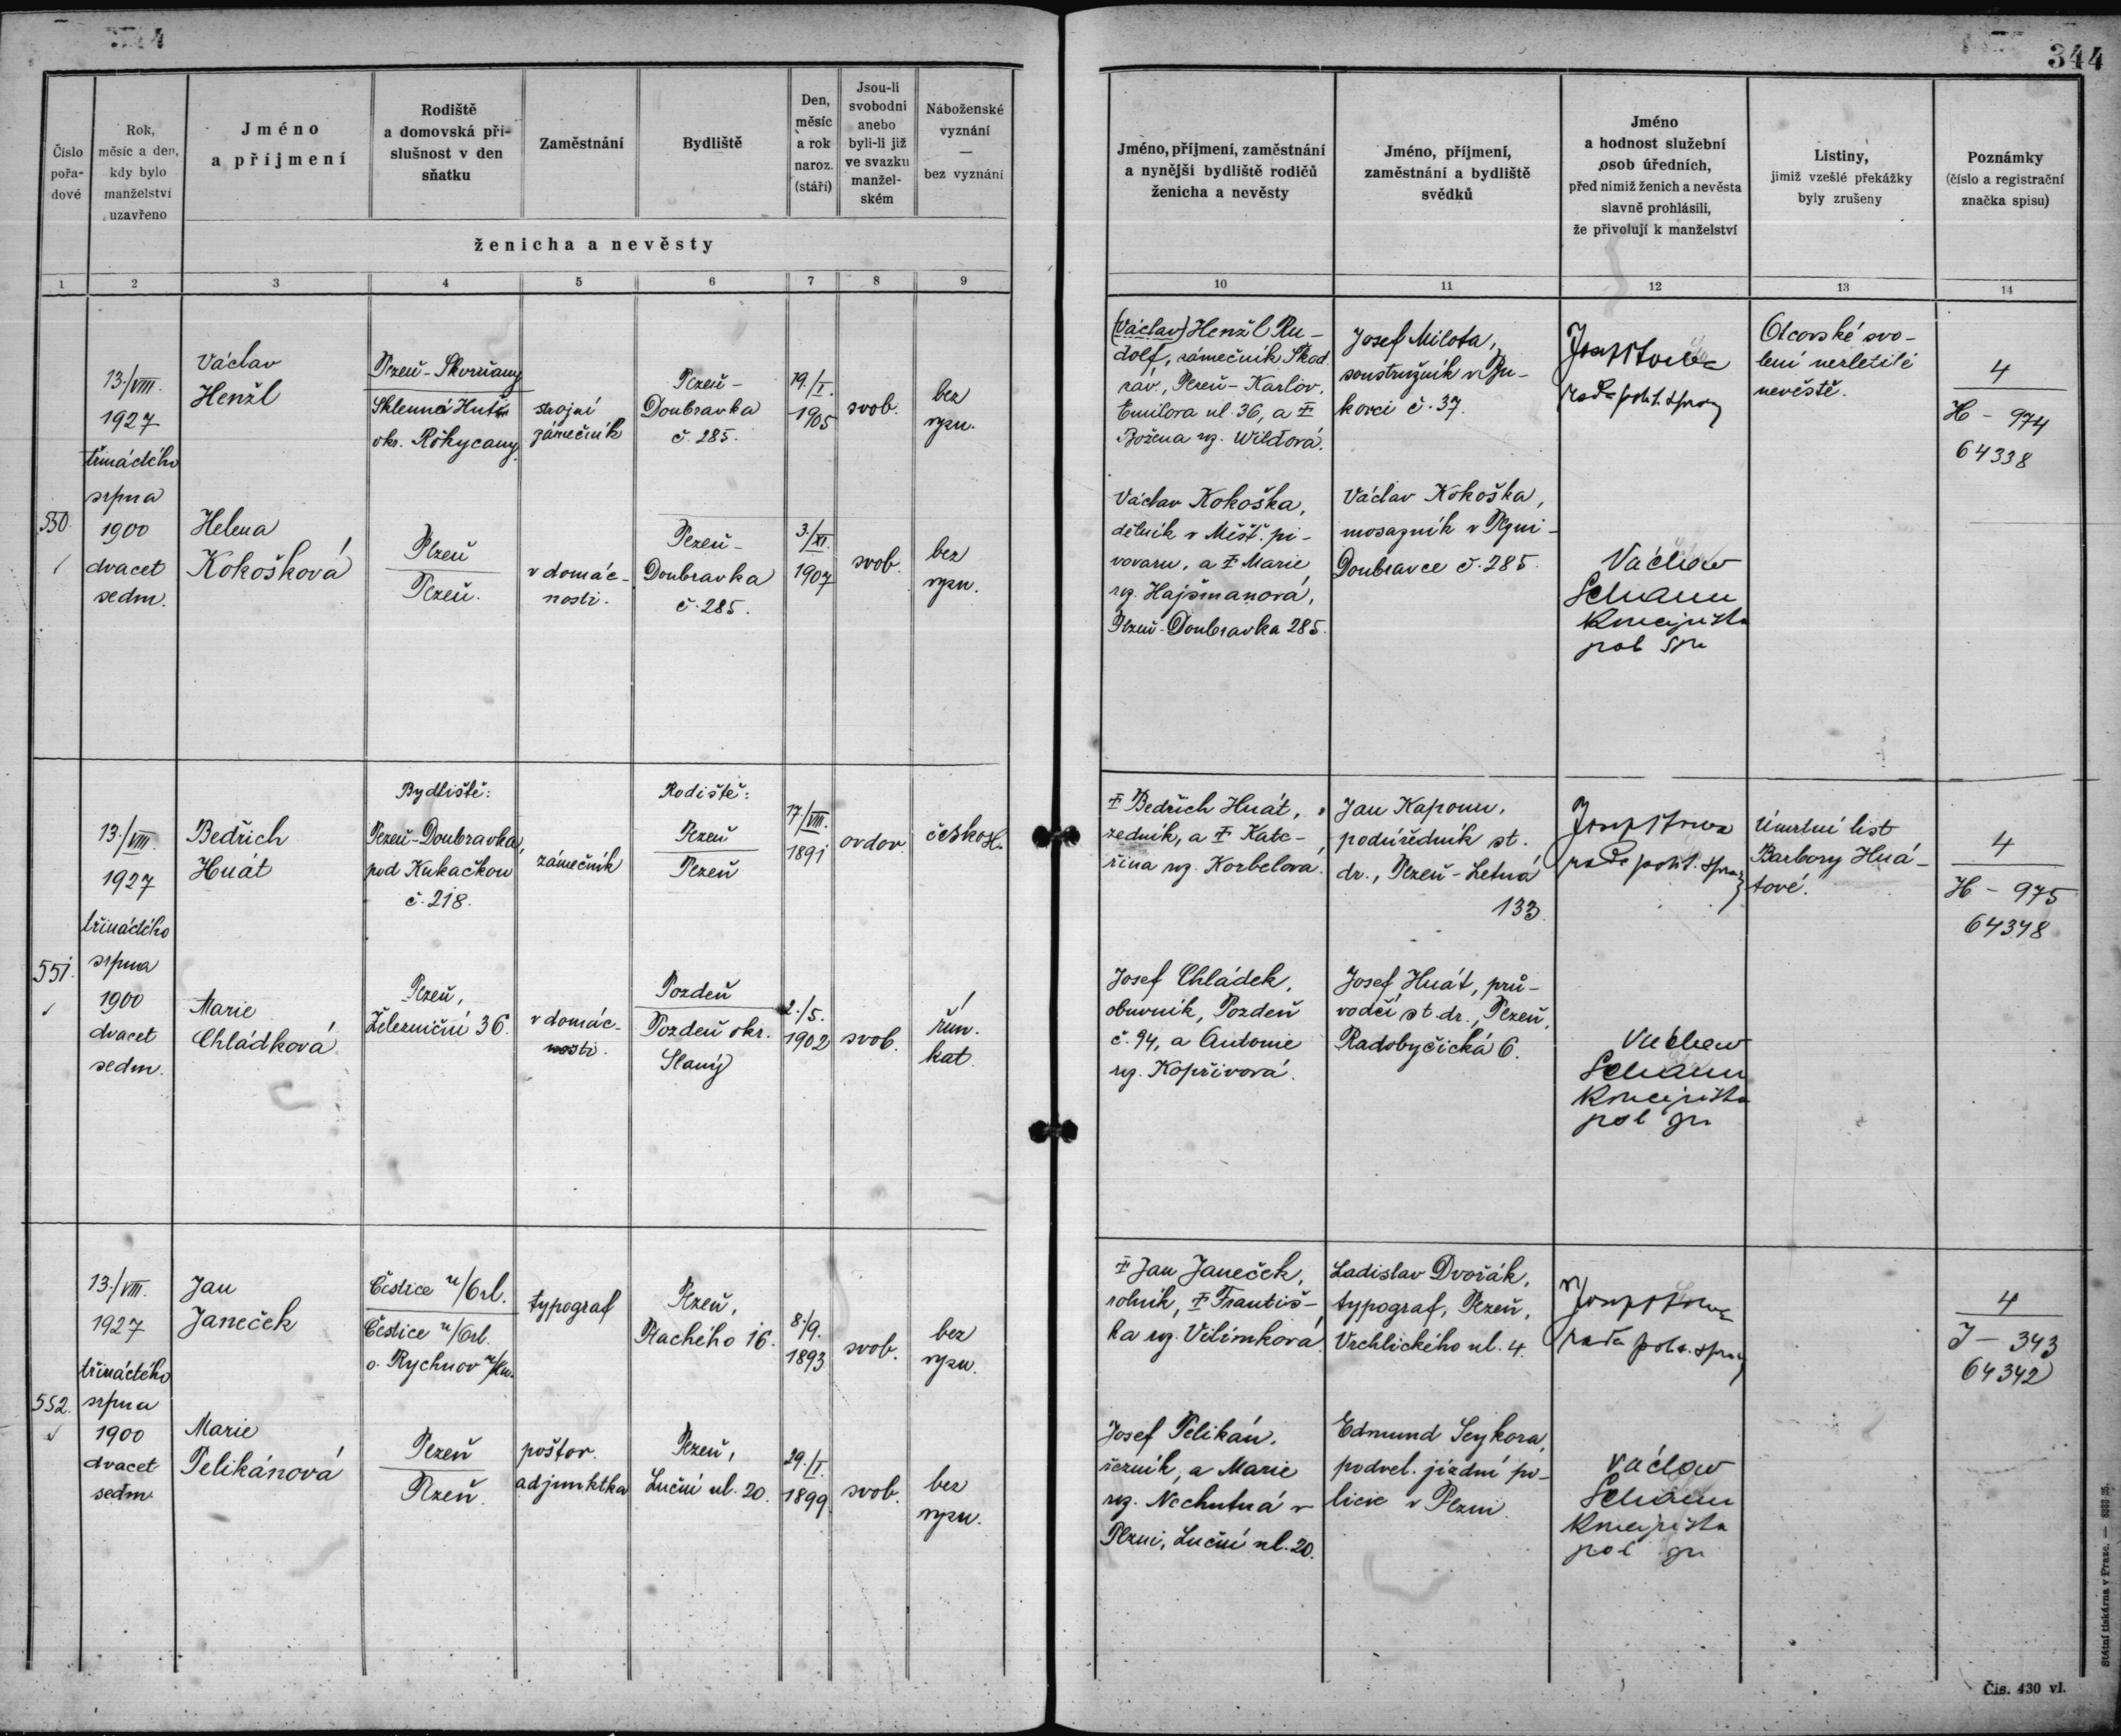 344
Číslo
pořa-
dové
Rok,
měsíc a den,
kdy bylo
manželství
uzavřeno
Jméno
a příjmení
Rodiště
a domovská pří-
slušnost v den
sňatku
Zaměstnání
Bydliště
Den,
měsíc
a rok
naroz.
(stáří)
Jsou-li
svobodni
anebo
byli-li již
ve svazku
manžel-
ském
Náboženské
vyznání
—
bez vyznání
ženicha a nevěsty
Jméno, příjmení, zaměstnání
a nynější bydliště rodičů
ženicha a nevěsty
Jméno, příjmení,
zaměstnání a bydliště
svědků
Jméno
a hodnost služební
osob úředních,
před nimiž ženich a nevěsta
slavně prohlásili,
že přivolují k manželství
Listiny,
jimiž vzešlé překážky
byly zrušeny
Poznámky
(číslo a registrační
značka spisu)
1 2 3 4 5 6 7 8 9 10 11 12 13 14
550.
13./VIII.
1927
třináctého
srpna
1900
dvacet
sedm.
Václav
Henžl
Plzeň-Skvrňany
Sklenná Huť
okr. Rokycany.
strojní
zámečník
Plzeň-
Doubravka
č. 285.
19./I.
1905
svob.
bez
vyzn.
(Václav) Henžl Ru-
dolf, zámečník Škod.
záv., Plzeň-Karlov,
Emilova ul. 36, a ‡
Božena rz. Wildová.
Josef Milota,
soustružník v Bu-
kovci č. 37.
rada polit. správy
Otcovské svo-
lení nezletilé
nevěstě.
4
H - 974
64338
Helena
Kokošková
Plzeň
Plzeň.
v domác-
nosti.
Plzeň-
Doubravka
č. 285.
3./XI.
1907
svob.
bez
vyzn.
Václav Kokoška,
dělník v Měšť. pi-
vovaru, a ‡ Marie
rz. Hajšmanová,
Plzeň-Doubravka 285.
Václav Kokoška,
mosazník v Plzni-
Doubravce č. 285.
Václav
Schann
koncipista
pol. spr.
551.
13./VIII.
1927
třináctého
srpna
1900
dvacet
sedm.
Bedřich
Huát
Bydliště:
Plzeň-Doubravka,
pod Kukačkou
č. 218.
zámečník
Rodiště:
Plzeň
Plzeň
17./VIII.
1891
ovdov.
českosl.
‡ Bedřich Huát,
zedník, a ‡ Kate-
řina rz. Korbelova.
Jan Kapoun,
podúředník st.
dr., Plzeň-Letná
133.
rada polit. správy
Úmrtní list
Barbory Huá-
tové.
4
H - 975
64348
Marie
Chládková
Plzeň,
Železniční 36.
v domác-
nosti.
Pozdeň
Pozdeň okr.
Slaný
2./5.
1902
svob.
řím.
kat.
Josef Chládek,
obuvník, Pozdeň
č. 94, a Antonie
rz. Kopřivová.
Josef Huát, prů-
vodčí st. dr., Plzeň,
Radobyčická 6.
Václav
Schann
koncipista
pol. spr.
552.
13./VIII.
1927
třináctého
srpna
1900
dvacet
sedm.
Jan
Janeček
Čestice n/Orl.
Čestice n/Orl.
o. Rychnov n/Kn.
typograf
Plzeň,
Plachého 16.
8./9.
1893
svob.
bez
vyzn.
‡ Jan Janeček,
rolník, ‡ Františ-
ka rz. Vilímková.
Ladislav Dvořák,
typograf, Plzeň,
Vrchlického ul. 4.
rada polit. správy
4
J - 343
64342
Marie
Pelikánová
Plzeň
Plzeň.
poštov.
adjunktka
Plzeň,
Luční ul. 20.
29./I.
1899.
svob.
bez
vyzn.
Josef Pelikán,
řezník, a Marie
rz. Nechutná v
Plzni, Luční ul. 20.
Edmund Seykora,
podvel. jízdní po-
licie v Plzni.
Václav
Schann
koncipista
pol. spr.
Státní tiskárna v Praze.
Čis. 430 vl.